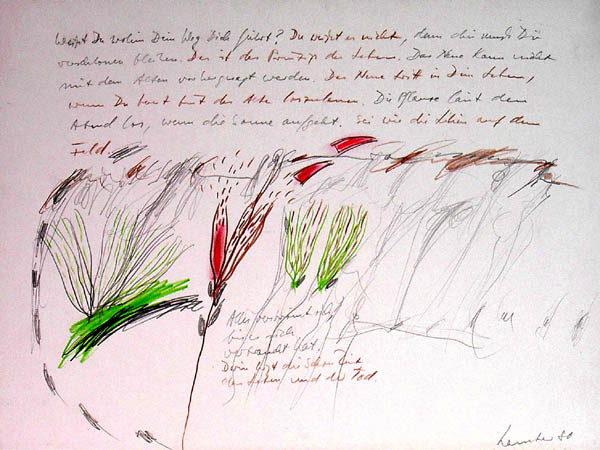 Weißt Du wohin Dein Weg Dich führt? Du weißt es nicht, denn die muß Dir
verschlossen bleiben. Das ist das Prinzip des Lebens. Das Neue kann nicht
mit dem Alten vorhergesagt werden. Das Neue tritt in Dein Leben,
wenn Du bereit bist das Alte loszulassen. Die Pflanze läßt den
Abend los, wenn die Sonne aufgeht. Sei wie die Lilien auf dem
Feld.
Alles
sich
hat.
Darin liegt die
des Lebens und der Tod.
80